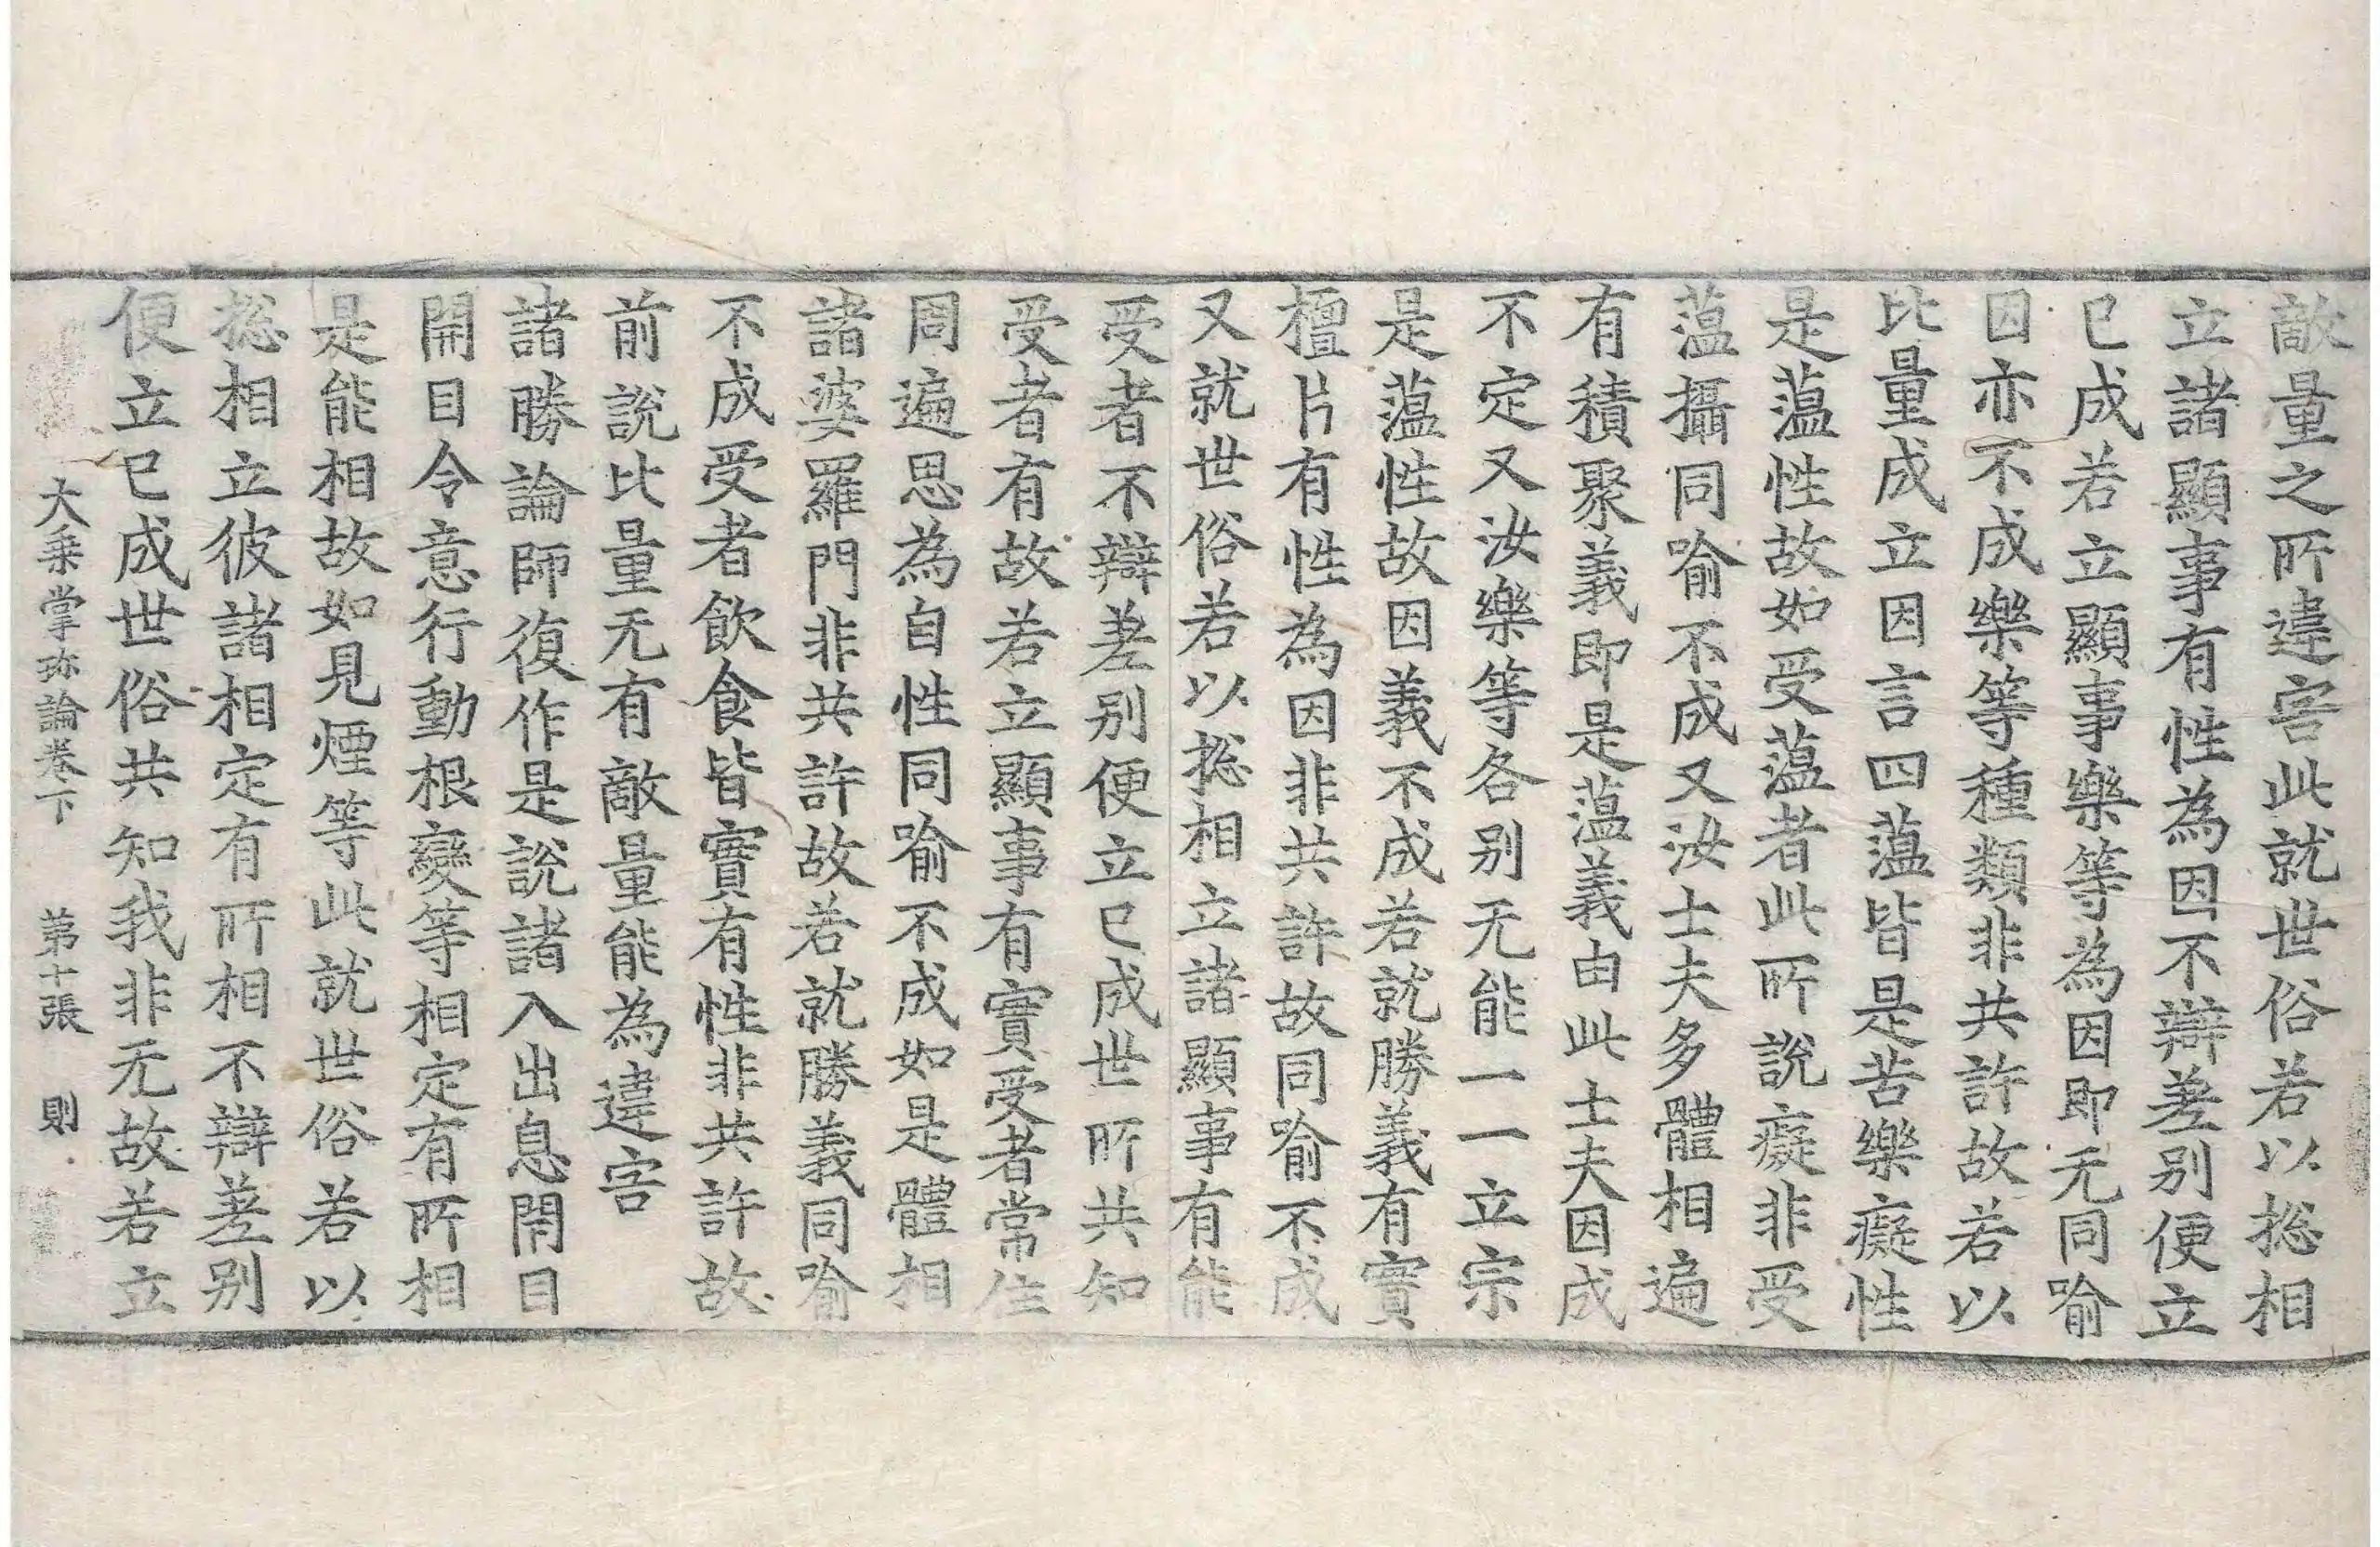 敵量之所違害此就世俗若以揔相
立諸顯事有性為因不辯差別便立
已成若立顯事樂等為因即无同喻
因亦不成樂等種類非共許故若以
比量成立因言四薀皆是苦樂癡性
是薀性故如受薀者此所說癡非受
薀攝同喻不成又汝士夫多體相遍
有積聚義即是薀義由此士夫因成
不定又汝樂等各別无能一一立宗
是薀性故因義不成若就勝義有實
檀片有性為因非共許故同喻不成
又就世俗若以揔相立諸顯事有能
受者不辯差別便立已成世所共知
受者有故若立顯事有實受者常住
周遍思為自性同喻不成如是體相
諸婆羅門非共許故若就勝義同喻
不成受者飲食皆實有性非共許故
前說比量无有敵量能為違害
諸勝論師復作是說諸入出息閇目
開目令意行動根變等相定有所相
是能相故如見煙等此就世俗若以
揔相立彼諸相定有所相不辯差別
便立已成世俗共知我非无故若立
大乗掌珎論卷下 第十張 則